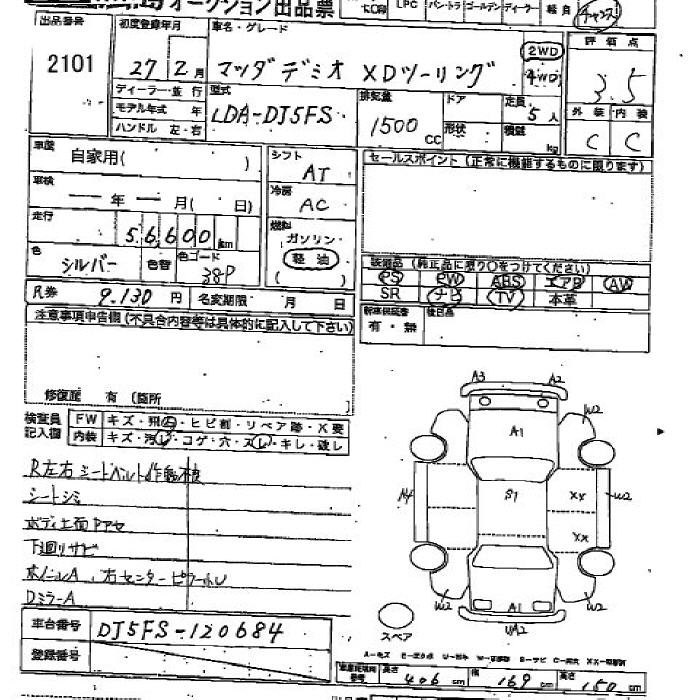 オークション出品票
LPC パン・トラ ゴールデン ディーラー 軽自
出品番号 初度登録年月 車名・グレード 評価点
2101 27年2月 マツダデミオ XDツーリング 2WD 4WD 3.5
ディーラー・並行 型式 排気量 ドア 定員 外装 内装
モデル年式 年 LDA-DJ5FS 1500cc 形状 5人 C C
ハンドル 左・右 積載 kg
車歴 自家用( ) シフト AT セールスポイント(正常に機能するものに限ります)
車検 ー年ー月( 日) 冷房 AC
走行 56,600km 燃料 ガソリン
色 シルバー 色替 色コード 38P 軽油
( )
装備品(純正品に限り○をつけてください)
PS PW ABS エアB AW
SR ナビ TV 本革
R券 9.130円 名変期限 月 日
新車保証書 後日品
有・無
注意事項申告欄(不具合内容等は具体的に記入して下さい)
修復歴 有(箇所
検査員記入欄 FW キズ・飛石・ヒビ割・リペア跡・X要
内装 キズ・汚レ・コゲ・穴・スレ・キレ・破レ
R左右シートベルト作動不良
シートシミ
ボディ上面
下廻りサビ
右センターピラー
DミラーA
A3 A2
W2
A1
A4 S1 XX W2
XX
W2 A1 W2
UA2
スペア
車台番号 DJ5FS-120684
登録番号
A-キズ E-エクボ
長さ 406cm 幅 169cm 高さ 150cm